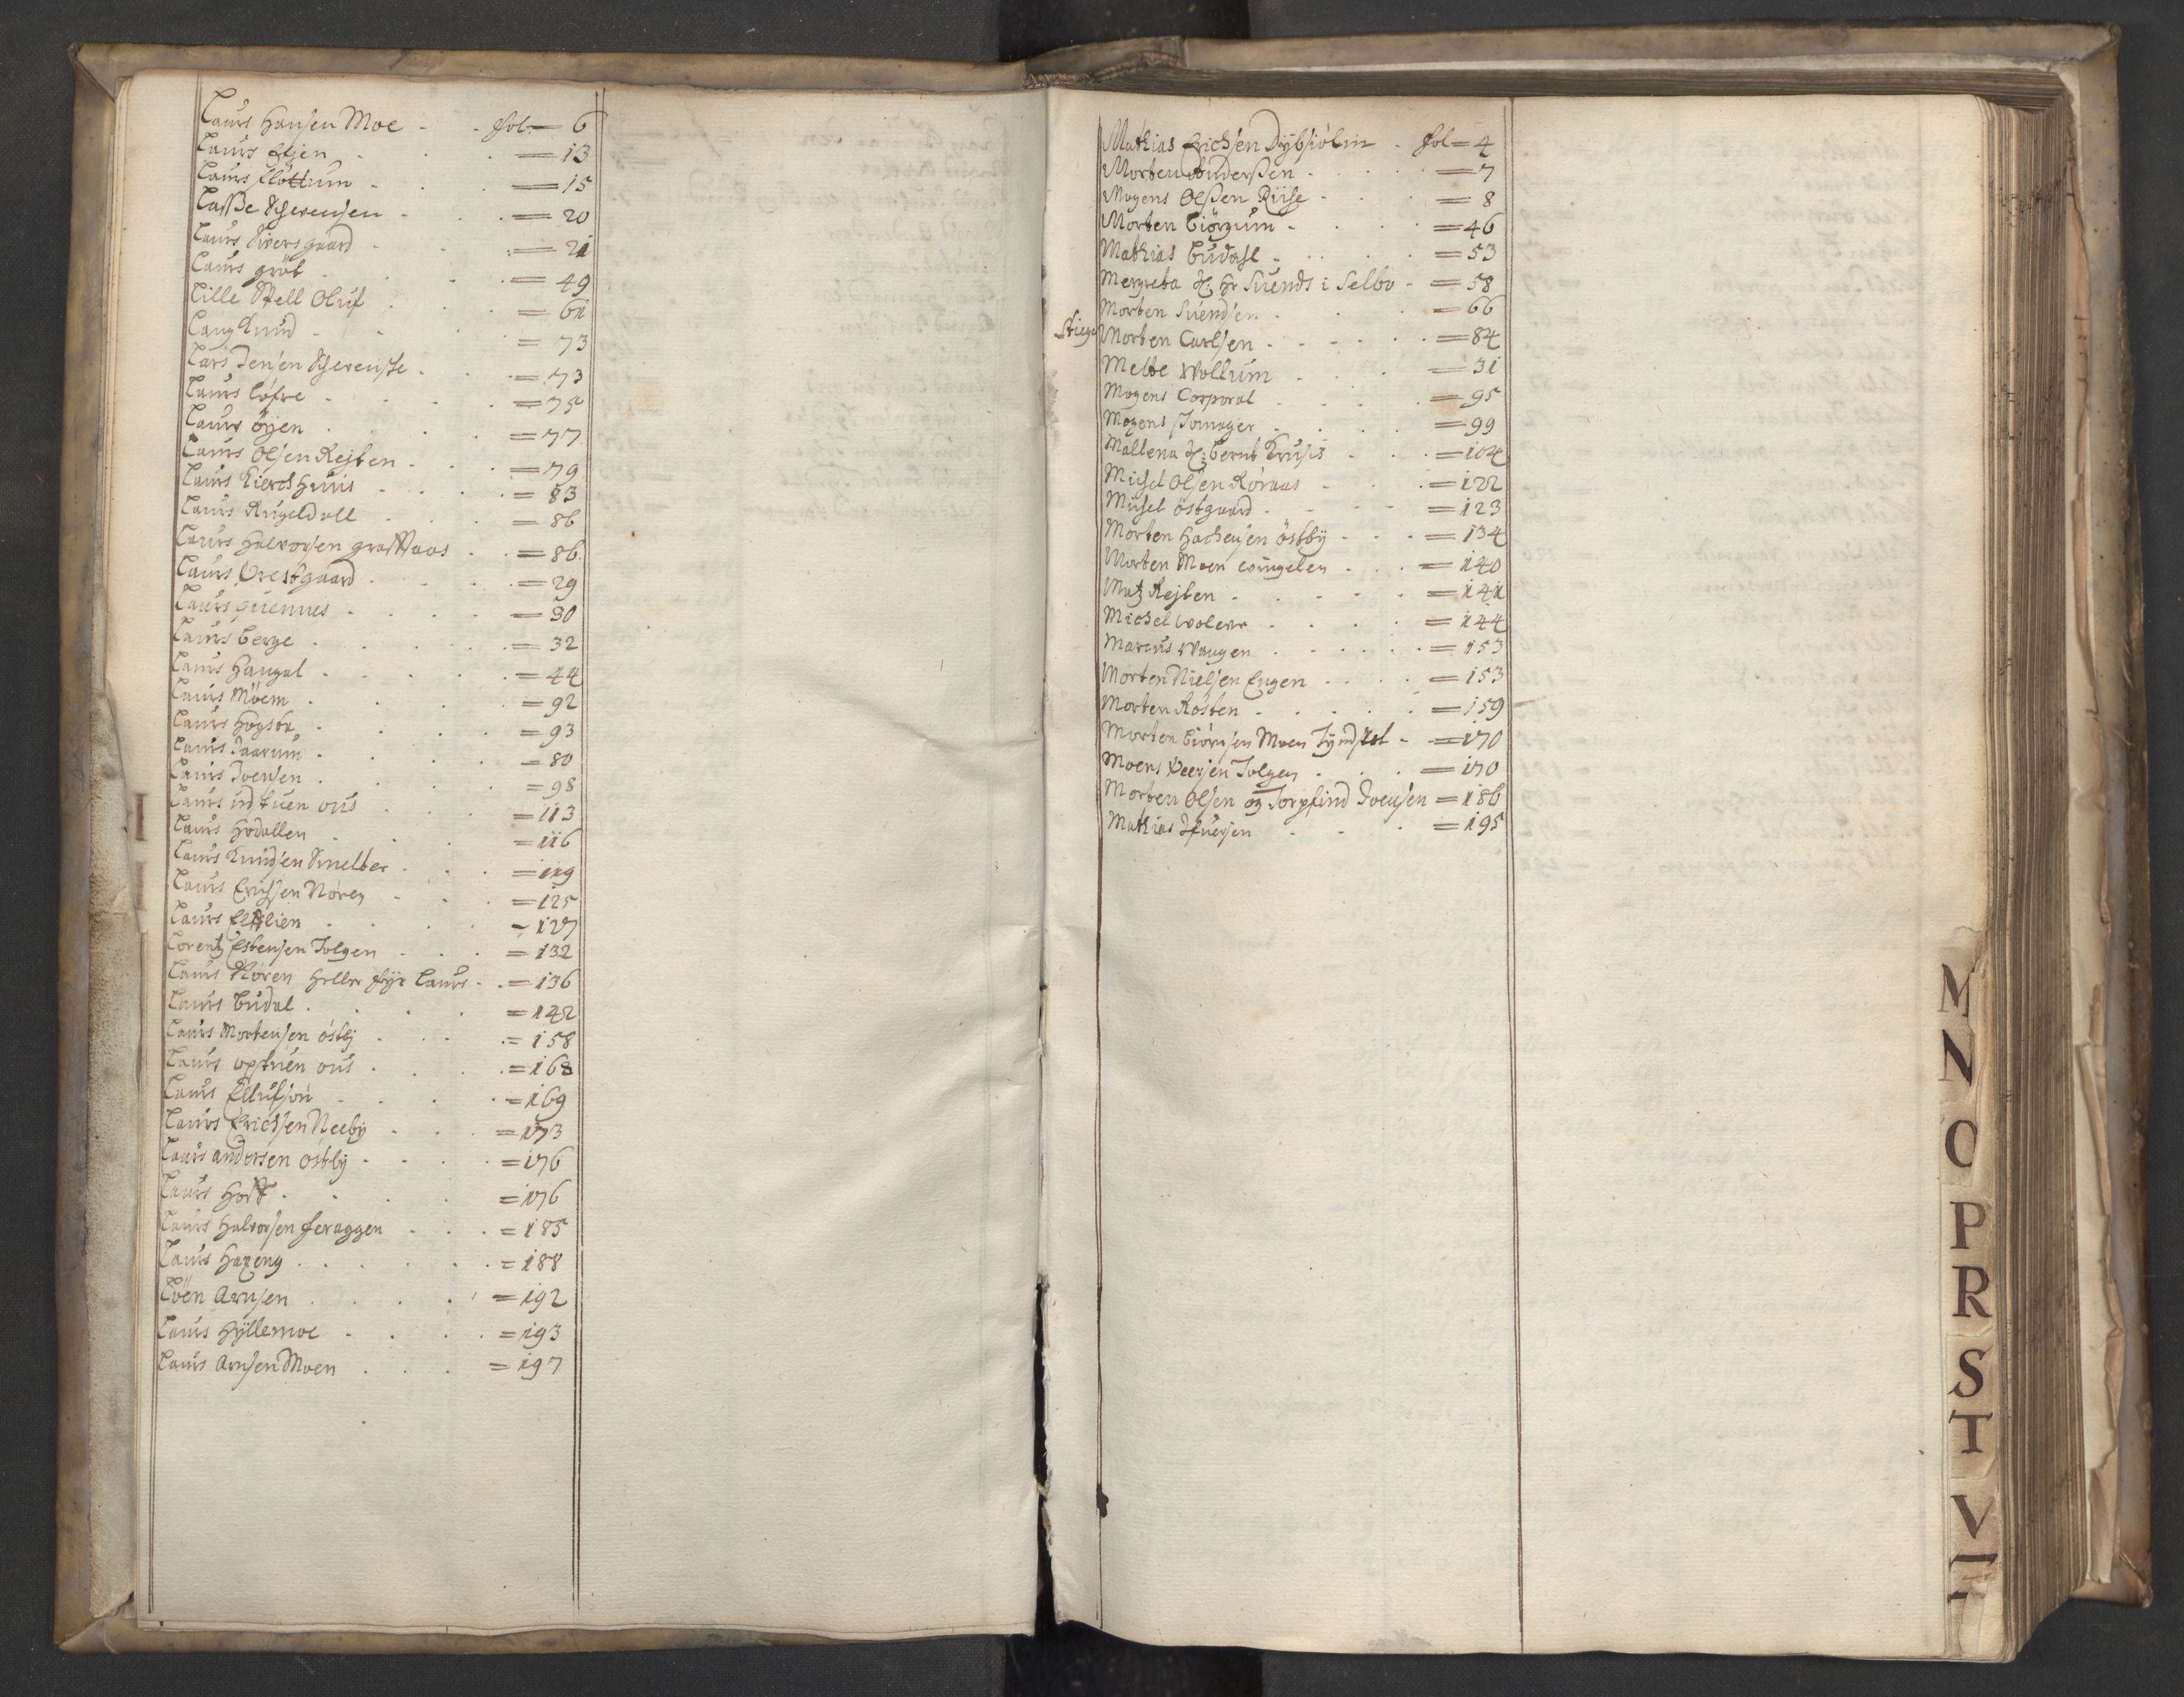 Laurs Hansen Moe - . fol = 6
Laurs Eijen . . . = 13
Laurs Flöttum - . . = 15
Lasse Sefrensen - . . = 20
Laurs Siversgaard - . . = 21
Laurs gröt . . . = 49
Lille Kield Oluf . . = 61
Lang Knud - . . = 73
Lars Jensen . . = 73
Laurs Löfre . . . = 75
Laurs öyen . . . = 77
Laurs Olsen Rejten - . . = 79
Laurs Kierchhuus - . . = 83
Laurs Rugeldall . . . = 86
Laurs Halvorsen graaaas . . = 86
Laurs Vrestgaard . . . = 29
Laurs quennes . . . = 30
Laurs berge . . . = 32
Laurs Haugal . . . = 44
Laurs Möem . . . = 92
Laurs Hogste . . . = 93
Laurs Jaarum - . . = 80
Laurs Joensen . . . = 98
Laurs ud tuen ous . . = 113
Laurs Hodallen . . . = 116
Laurs Knudsen Smelter . . = 119
Laurs Erichsen Nören - . . = 125
Laurs Ellien . . . = 127
Lorentz Estensen Tolgen - . . = 132
Laurs Nören Heller Laurs - . = 136
Laurs Budal . . . = 142
Laurs Mortensen östby . . = 158
Laurs optuen ous . . = 168
Laurs Ellufson - . . = 169
Laurs Erichsen Neeby - . . = 173
Laurs andersen östby - . . = 176
Laurs Hoff . . . = 176
Laurs Halvorsen feraggen . . = 185
Laurs Hageng . . . = 188
Löen Arnsen . . . = 192
Laurs Hyllemoe - . . = 193
Laurs Arnsen Moen . . . = 197
Mathias Erichsen Dybsiölin - fol = 4
Morten Anderssen . . . = 7
Mogens Olssen Riise - . . = 8
Morten Biörgum - . . = 46
Mathias Budahl - . . = 53
Margreta H: Hr Suends i Selbo - = 58
Morten Suendsen . . = 66
Stiger Morten Carlsen - - - = 84
Melte Wollum - . . = 31
Mogens Corporal . . . = 95
Mogens Jomager . . . = 99
Mallena H: bernt Krusis - . . = 104
Michel Olsen Röraas - . . = 122
Michel östgaard . - - = 123
Morten Hachensen östby - - - = 134
Morten Moen evingelen - . . = 140
Matz Rejten - . . . = 141
Michel Wolenr . . . = 144
Marcus Waugen . . . = 153
Morten Nielsen Eugen . . . = 153
Morten Rösten - . . . = 159
Morten Biörnsen Moen Tyndset - - = 170
Moens Peersen Tolgen . . . = 170
Morten Olsen og Torfind Joensen = 186
Mathias Ifuersen . . . = 195
M
N
O
P
R
S
T
V